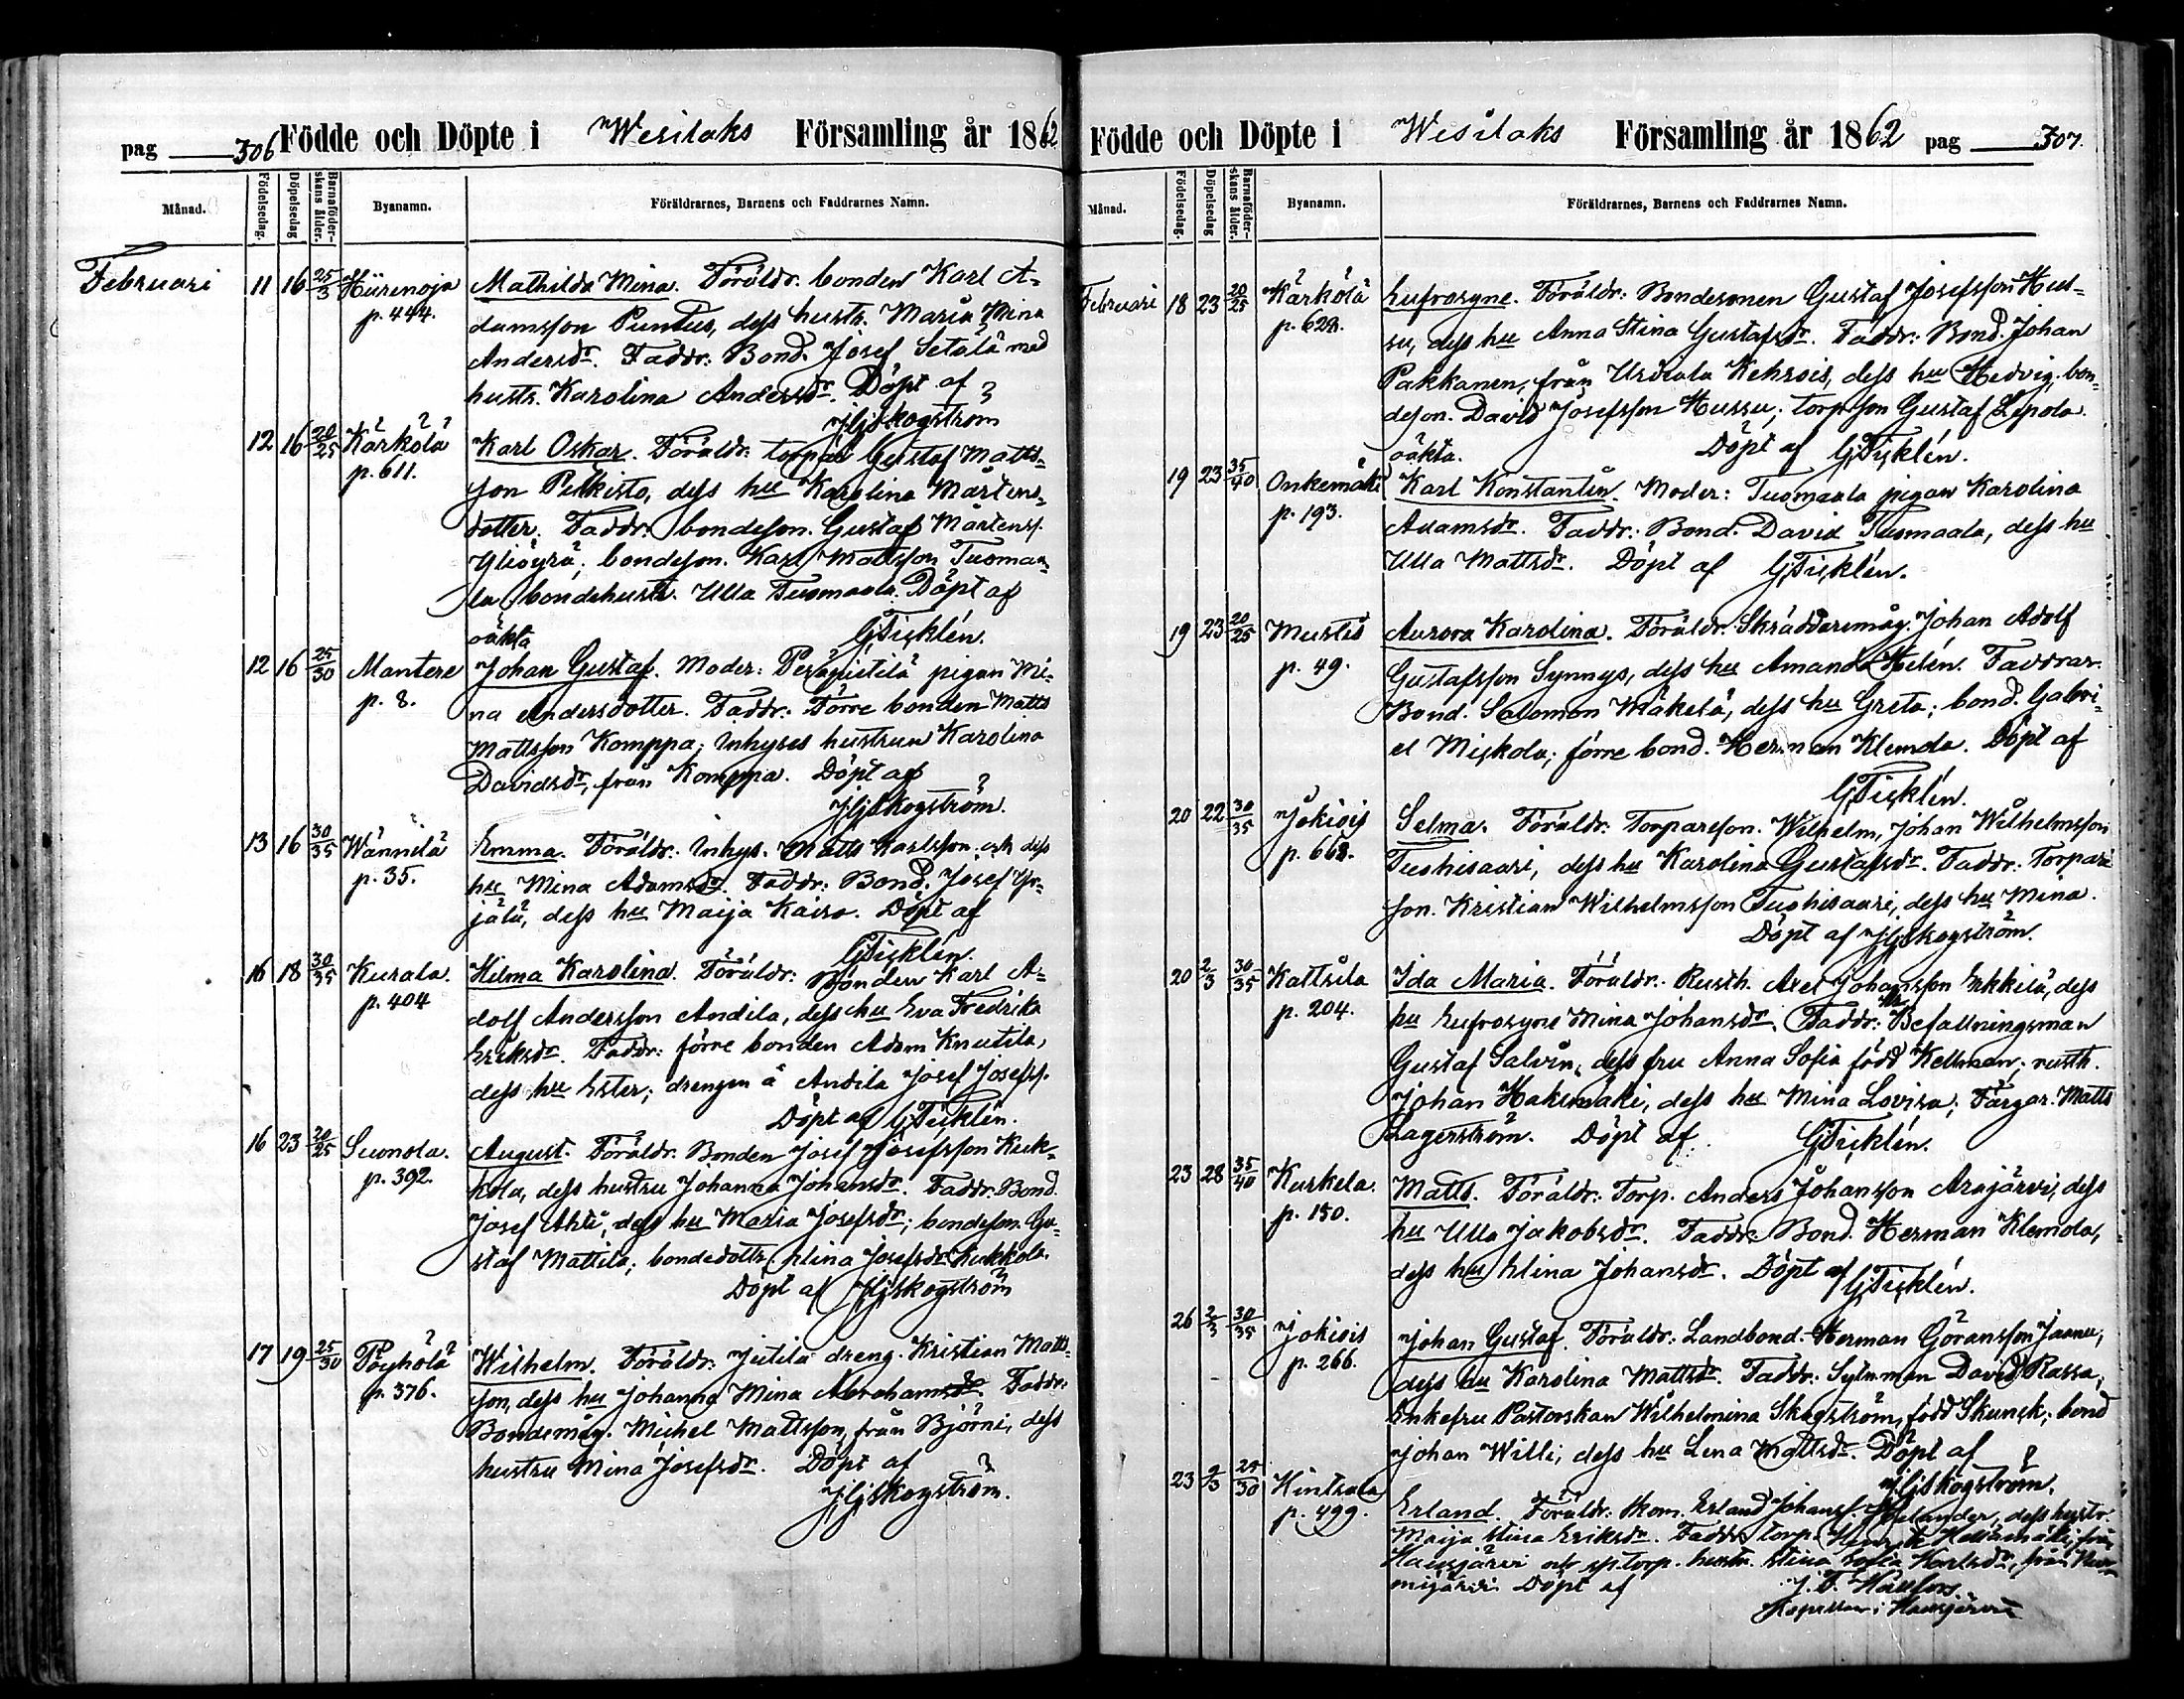 pag 306 Födde och Döpte i Wesilaks Församling år 1862
Månad. Födelsedag. Döpelsedag Barnaföderskans ålder. Byanamn. Föräldrarnes, Barnens och Faddrarnes Namn.
Februari 11 16 25/3 Hiirenoja Mathilda Mina. Föräldr. bonden Karl A-
p. 444. damsson Puntus, dess hustr. Maria Mina
Andersdr. Faddr: Bond. Josef Setälä med
hustr. Karolina Andersdr. Döpt af
JGSkogström
12 16 20/25 Kärkölä Karl Oskar. Föräldr: torpar Gustaf Matts-
p. 611. son Pelkisto, dess hu Karolina Mårtens-
dotter. Faddr: bondeson. Gustaf Mårtenss.
Yliöyrä; bondeson. Karl Mattsson Tuomaa-
la, bondehustr. Ulla Tuomaala. Döpt af
GTicklén.
oäkta
12 16 25/30 Mantere Johan Gustaf. Moder: Peräpietilä pigan Mi-
p. 8. na Andersdotter. Faddr: Förre bonden Matts
Mattsson Komppa; Inhyses hustrun Karolina
Davidsdr, från Komppa. Döpt af
JGSkogström.
13 16 30/35 Wännilä Emma. Föräldr. Inhys. Matts Karlsson och dess
p. 35. hu Mina Adamsdr. Faddr: Bond. Josef Yr-
jälä, dess hu Maija Kaisa. Döpt af
GTicklén.
16 18 30/35 Kurala. Hilma Karolina. Föräldr: Bonden Karl A-
p. 404 dolf Andersson Andila, dess hu Eva Fredrika
Eriksdr. Faddr: förre bonden Adam Knutila,
dess hu Ester; drengen å Andila Josef Josefss.
Döpt af GTicklén.
16 23 20/25 Suonola. August. Föräldr. Bonden Josef Josefsson Kuk-
p. 392. kola, dess hustru Johanna Johansdr. Faddr. Bond.
Josef Ahti, dess hu Maria Josefsdr; bondeson. Gu-
staf Mattila; bondedottr. Elina Josefsdr Kukkola.
Döpt af JGSkogström
17 19 25/30 Pöyhölä Wilhelm. Föräldr: Jutila dreng. Kristian Matts-
p. 376. son, dess hu Johanna Mina Abrahamsdr. Faddr:
Bondemåg. Michel Mattsson, från Björni, dess
hustru Mina Josefsdr. Döpt af
JGSkogström.
Födde och Döpte i Wesilaks Församling år 1862 pag 307.
Månad. Födelsedag. Döpelsedag Barnaföderskans ålder. Byanamn. Föräldrarnes, Barnens och Faddrarnes Namn.
Februari 18 23 20/25 Kärkölä Eufrosyne. Föräldr: Bondesonen Gustaf Josefsson Hus-
p. 628. su, dess hu Anna Stina Gustafsdr. Faddr: Bond. Johan
Pakkanen, från Urdiala Kehrois, dess hu Hedvig, bon-
deson. David Josefsson Hussu; torpson Gustaf Lepola.
Döpt af GTicklén.
oäkta.
19 23 35/40 Onkemäki Karl Konstantin. Moder: Tuomaala pigan Karolina
p. 193. Adamsdr. Faddr: Bond. David Tuomaala, dess hu
Ulla Mattsdr. Döpt af GTicklén.
19 23 20/25 Mustis Aurora Karolina. Föräldr: Skräddaremåg. Johan Adolf
p. 49. Gustafsson Synnys, dess hu Amanda Helén. Faddrar:
Bond. Salomon Mäkelä, dess hu Greta; bond. Gabri-
el Miskola; förre bond. Herman Klemola. Döpt af
GTicklén.
20 22 30/35 Jokiois Selma. Föräldr: Torpareson. Wilhelm, Johan Wilhelmsson
p. 668. Tuohisaari, dess hu Karolina Gustafsdr. Faddr: Torpare
son. Kristian Wilhelmsson Tuohisaari, dess hu Mina.
Döpt af JGSkogström.
20 2/3 30/35 Kaltsila Ida Maria. Föräldr: Rusth. Axel Johansson Erkkilä, dess
p. 204. hu Eufrosyne Mina Johansdr. Faddr: Hr Befallningsman
Gustaf Salvin, dess fru Anna Sofia född Kellman; rusth.
Johan Hakemäki, dess hu Mina Lovisa; Färgar. Matts
Lagerström. Döpt af GTicklén.
23 28 35/40 Kurkela. Matts. Föräldr: Torp. Anders Johansson Arajärvi, dess
p. 150. hu Ulla Jakobsdr. Faddr: Bond. Herman Klemola,
dess hu Elina Johansdr. Döpt af GTicklén.
26 2/3 30/35 Jokiois Johan Gustaf. Föräldr: Landbond. Herman Göransson Jaanu,
p. 266. dess hu Karolina Mattsdr. Faddr: Sytn.man David Rassa,
Enkefru Pastorskan Wilhelmina Skogström, född Skunck; bond
Johan Willi; dess hu Lena Mattsdr. Döpt af
JGSkogström.
23 9/3 25/30 Hintsala Erland. Föräldr: Skom. Erland Johanss. Helander, dess hustr.
p. 499. Maija Stina Eriksdr. Faddr: torp. från
Hausjärvi och torp. hustr. Stina Sofia Karlsdr, från Nur-
mijärvi. Döpt af J. F. Hallfors
Kapellan i Hausjärvi